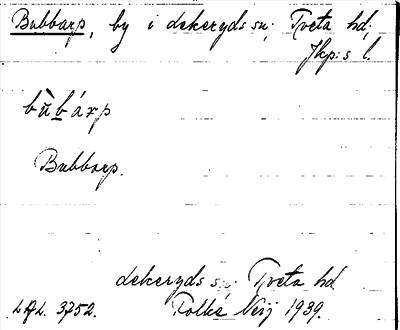 Bubbarp, by i Lekeryds sn; Tveta hd;
Jkp:s l.
bùbárp
Bubbarp.
Lekeryds sn. Tveta hd
L.A.L. 3752. Folke Neij 1939.